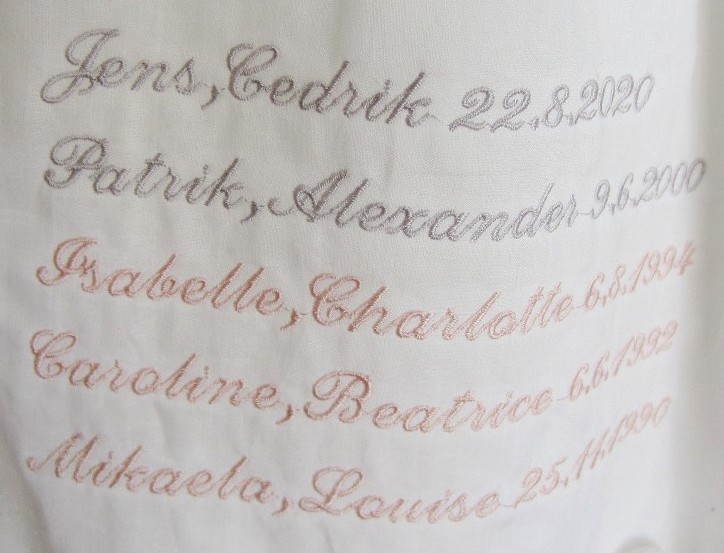 Jens, Cedrik 22.8.2020
Patrik, Alexander 9.6.2000
Isabelle, Charlotte 6.8.1994
Caroline, Beatrice 6.6.1992
Mikaela, Louise 25.11.1990